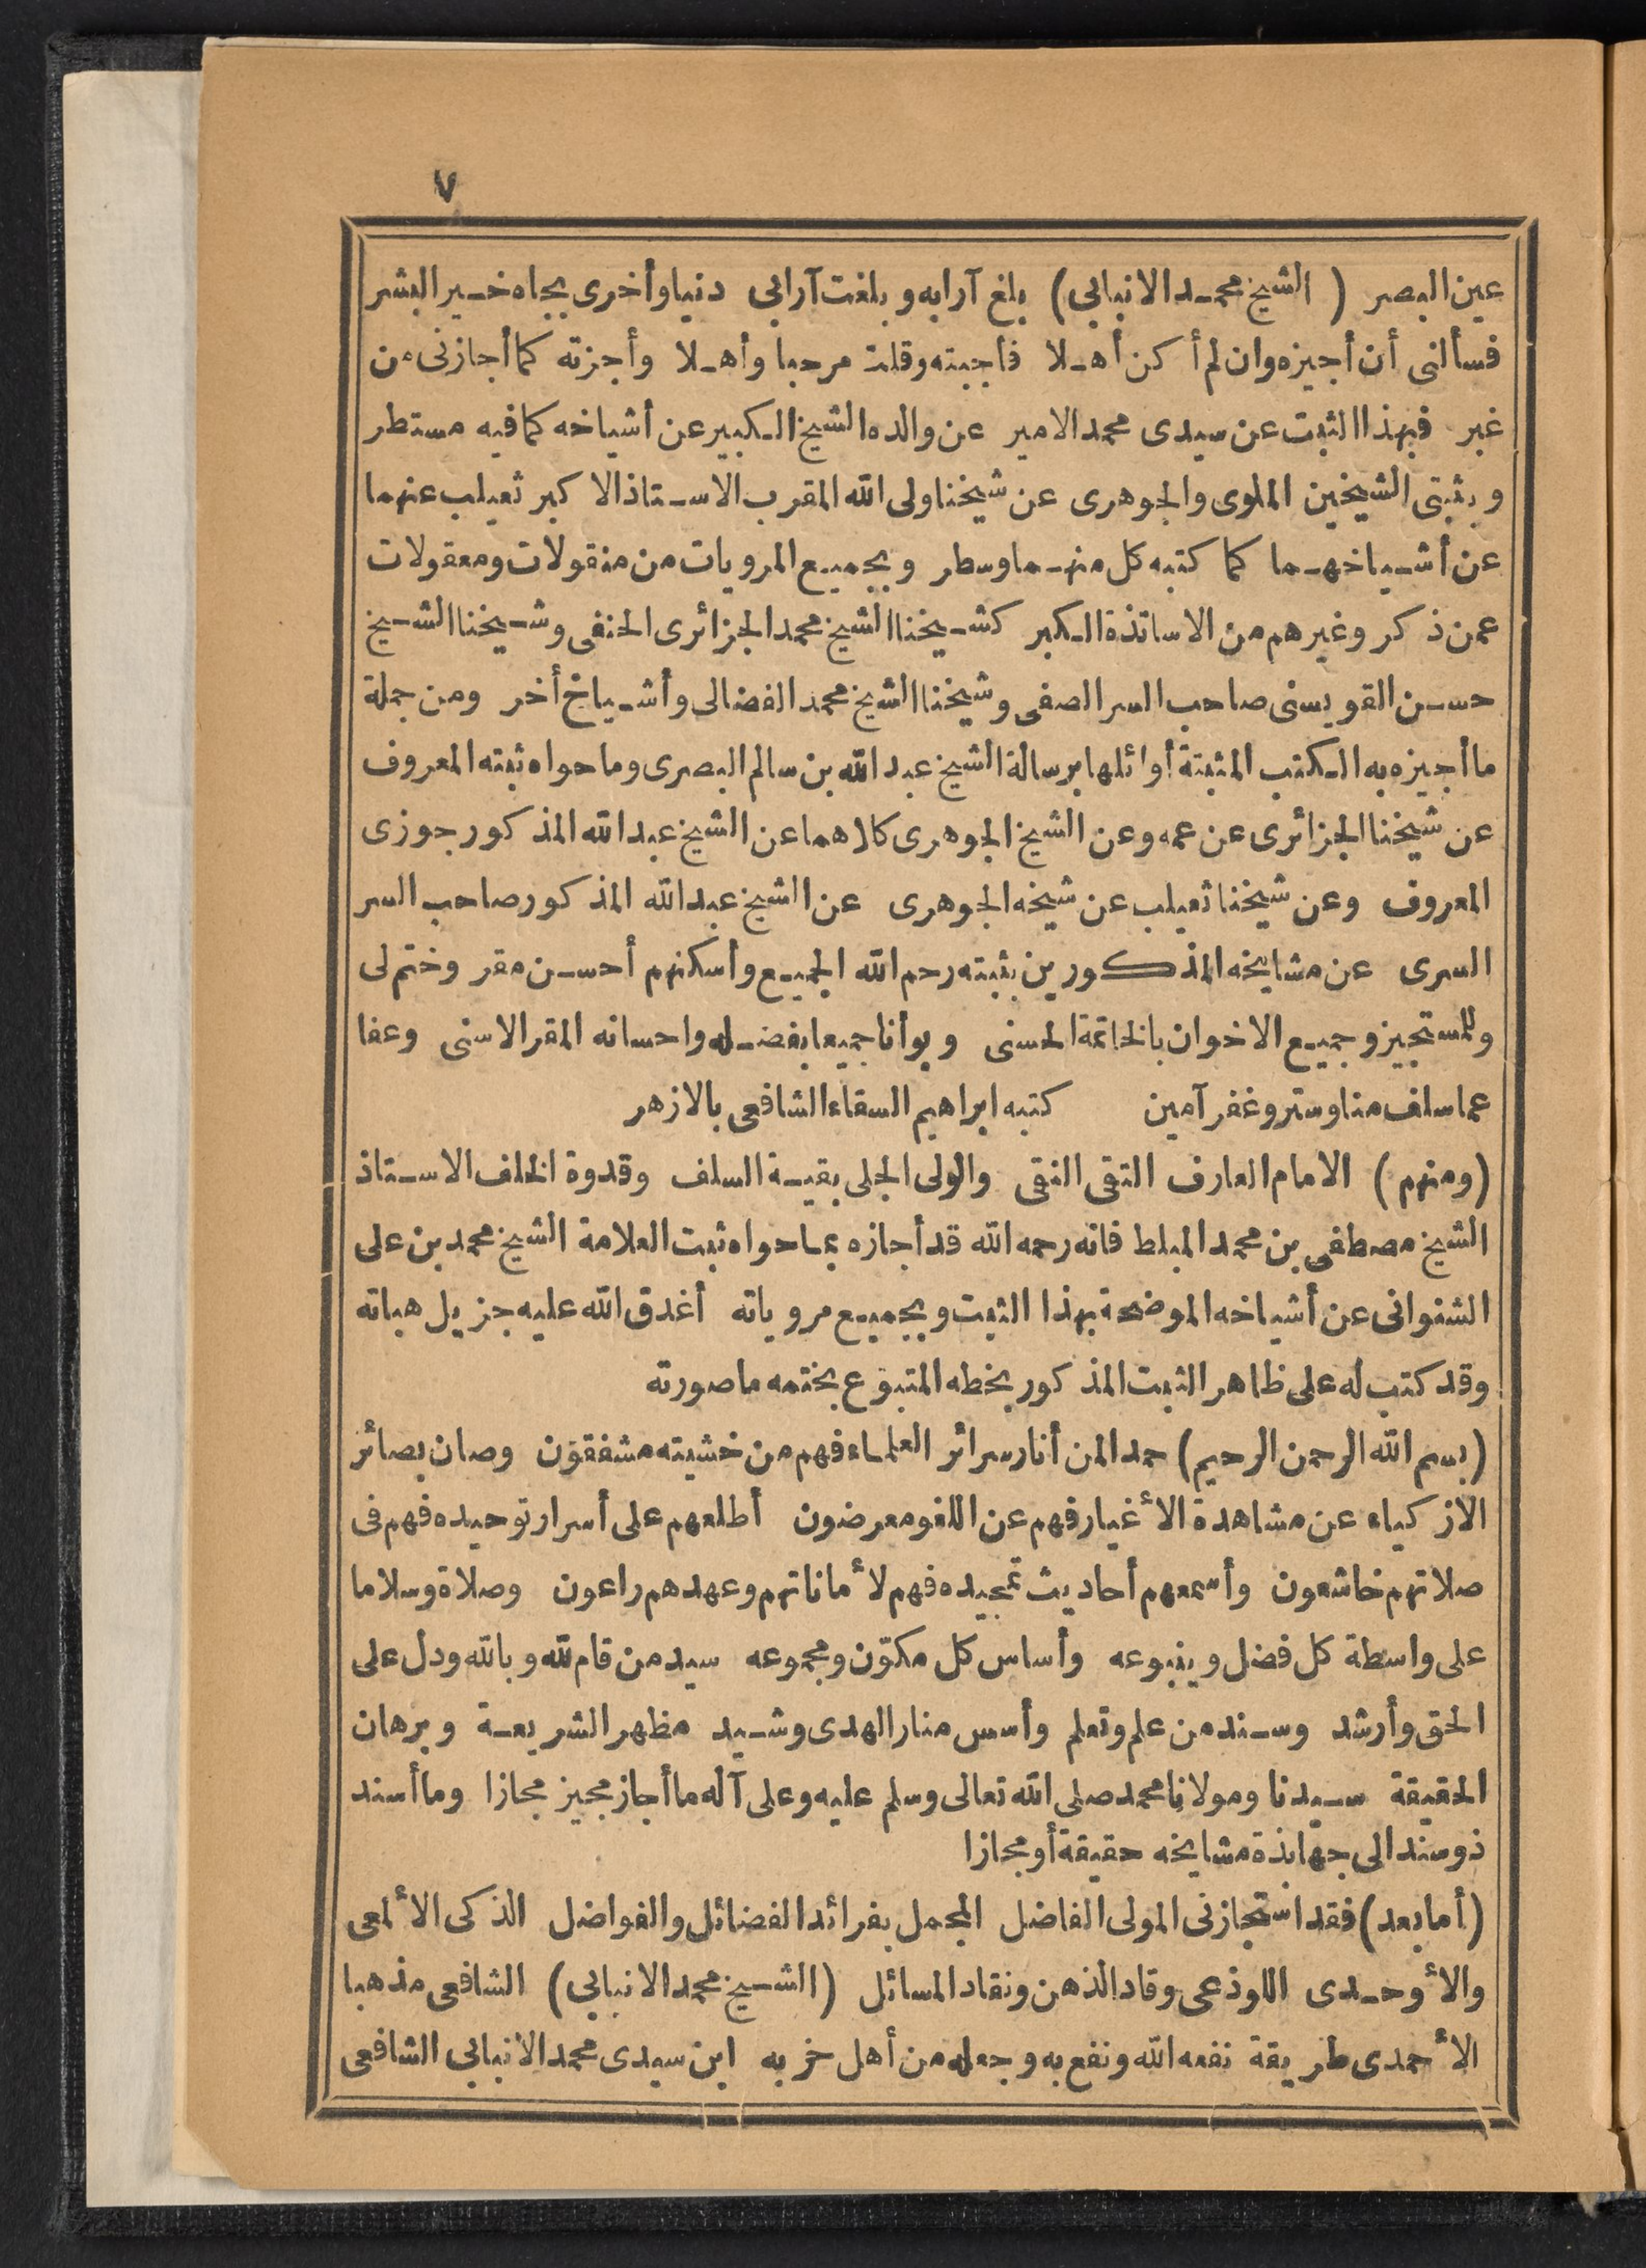 ٧
عين البصر ( الشيخ محمد الانبابى ) بلغ آرابه وبلغت آرابى دنيا وأخرى بجاه خير البشر
فسألنى أن أجيزه وان لم أكن أهلا فأجبته وقلت مرحبا وأهلا وأجزته كما أجازنى من
غبر فبهذا الثبت عن سيدى محمد الامير عن والده الشيخ الكبير عن أشياخه كما فيه مستطر
وبثبتى الشيخين الملوى والجوهرى عن شيخنا ولى الله المقرب الاستاذ الاكبر ثعيلب عنهما
عن أشياخهما كما كتبه كل منهما وسطر وبجميع المرويات من منقولات ومعقولات
عمن ذكر وغيرهم من الاساتذة الكبر كشيخنا الشيخ محمد الجزائرى الحنفى وشيخنا الشيخ
حسن القويسنى صاحب السر الصفى وشيخنا الشيخ محمد الفضالى وأشياخ أخر ومن جملة
ما أجيزه به الكتب المثبتة أوائلها برسالة الشيخ عبد الله بن سالم البصرى وما حواه ثبته المعروف
عن شيخنا الجزائرى عن عمه وعن الشيخ الجوهرى كلاهما عن الشيخ عبد الله المذكور جوزى
المعروف وعن شيخنا ثعيلب عن شيخه الجوهرى عن الشيخ عبد الله المذكور صاحب السر
السرى عن مشايخه المذكورين بثبته رحم الله الجميع وأسكنهم أحسن مقر وختم لى
وللمستجيز وجميع الاخوان بالخاتمة الحسنى وبوأنا جميعا بفضله واحسانه المقر الاسنى وعفا
عما سلف منا وستر وغفر آمين كتبه ابراهيم السقاء الشافعى بالازهر
(ومنهم) الامام العارف التقى النقى والولى الجلى بقية السلف وقدوة الخلف الاستاذ
الشيخ مصطفى بن محمد المبلط فانه رحمه الله قد أجازه بما حواه ثبت العلامة الشيخ محمد بن على
الشنوانى عن أشياخه الموضحة بهذا الثبت وبجميع مروياته أغدق الله عليه جزيل هباته
وقد كتب له على ظاهر الثبت المذكور بخطه المتبوع بختمه ما صورته
(بسم الله الرحمن الرحيم) حمدا لمن أنار سرائر العلماء فهم من خشيته مشفقون وصان بصائر
الازكياء عن مشاهدة الأغيار فهم عن اللغو معرضون أطلعهم على أسرار توحيده فهم فى
صلاتهم خاشعون وأسمعهم أحاديث تمجيده فهم لأماناتهم وعهدهم راعون وصلاة وسلاما
على واسطة كل فضل وينبوعه وأساس كل مكوّن ومجموعه سيد من قام لله وبالله ودل على
الحق وأرشد وسند من علم وتعلم وأسس منار الهدى وشيد مظهر الشريعة وبرهان
الحقيقة سيدنا ومولانا محمد صلى الله تعالى وسلم عليه وعلى آله ما أجاز مجيز مجازا وما أسند
ذو سند الى جهابذة مشايخه حقيقة أو مجازا
(أما بعد) فقد استجازنى المولى الفاضل المجمل بفرائد الفضائل والفواضل الذكى الألمعى
والأوحدى اللوذعى وقاد الذهن ونقاد المسائل (الشيخ محمد الانبابى) الشافعى مذهبا
الأحمدى طريقة نفعه الله ونفع به وجعله من أهل حزبه ابن سيدى محمد الانبابى الشافعى